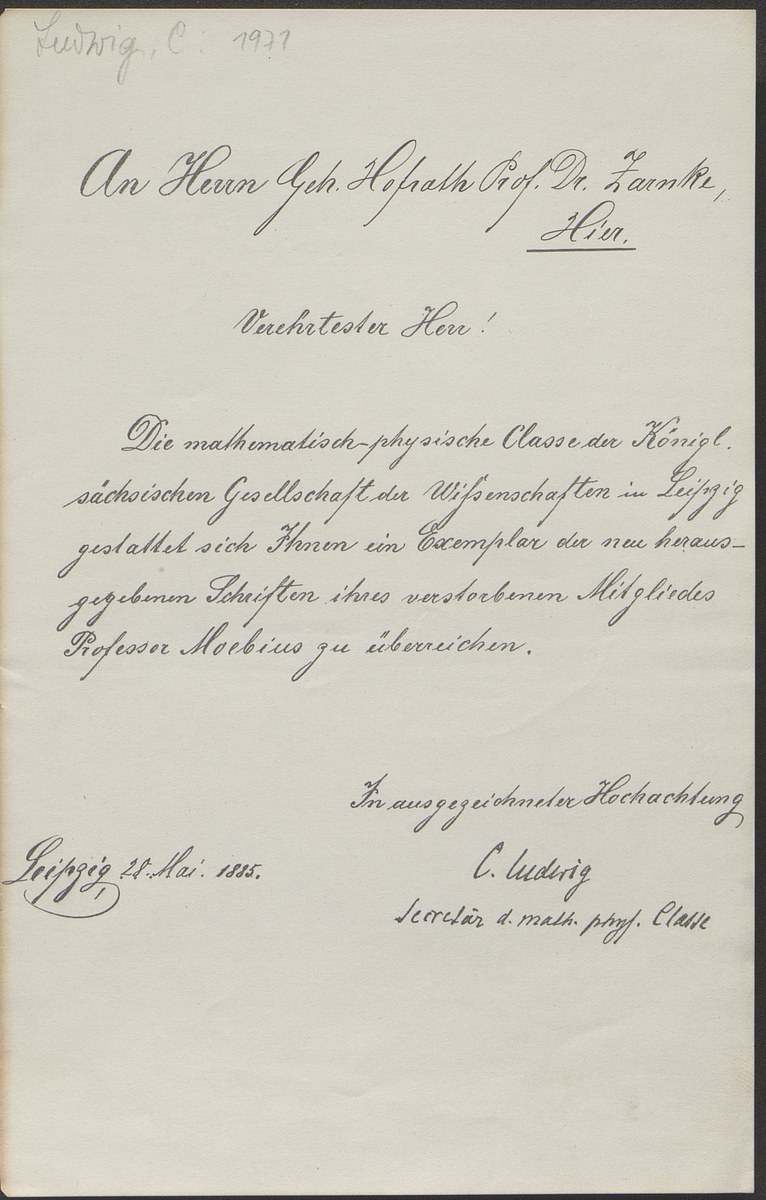 Ludwig, C. 1971
An Herrn Geh. Hofrath Prof. Dr. Zarnke,
Hier.
Verehrtester Herr!
Die mathematisch-physische Classe der Königl.
sächsischen Gesellschaft der Wißenschaften in Leipzig
gestattet sich Ihnen ein Exemplar der neu heraus-
gegebenen Schriften ihres verstorbenen Mitgliedes
Professor Moebius zu überreichen.
In ausgezeichneter Hochachtung
Leipzig, 28. Mai. 1885.
C. Ludwig
Secretär d. math. phys. Classe